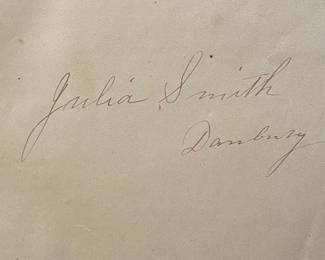 Julia Smith
Danbury